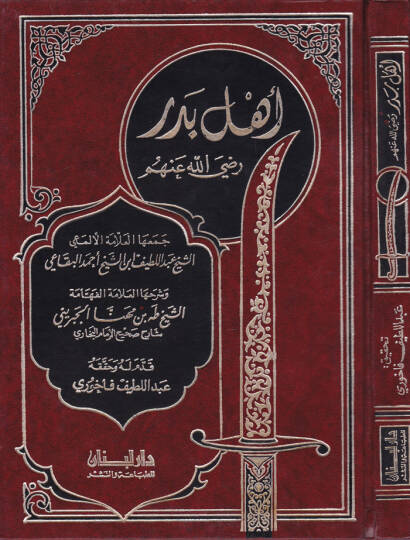 أهل بدر
رضي الله عنهم
جمعها العلامة الألمعي
الشيخ عبد اللطيف ابن الشيخ أحمد البقاعي
وشرحها العلامة الفهامة
الشيخ طه بن مهنا الجبريني
شارح صحيح الإمام البخاري
قدم له وحققه
عبد اللطيف فاخوري
دار لبنان
للطباعة والنشر
أهل بدر
رضي الله عنهم
تحقيق:
عبد اللطيف فاخوري
دار لبنان
للطباعة والنشر